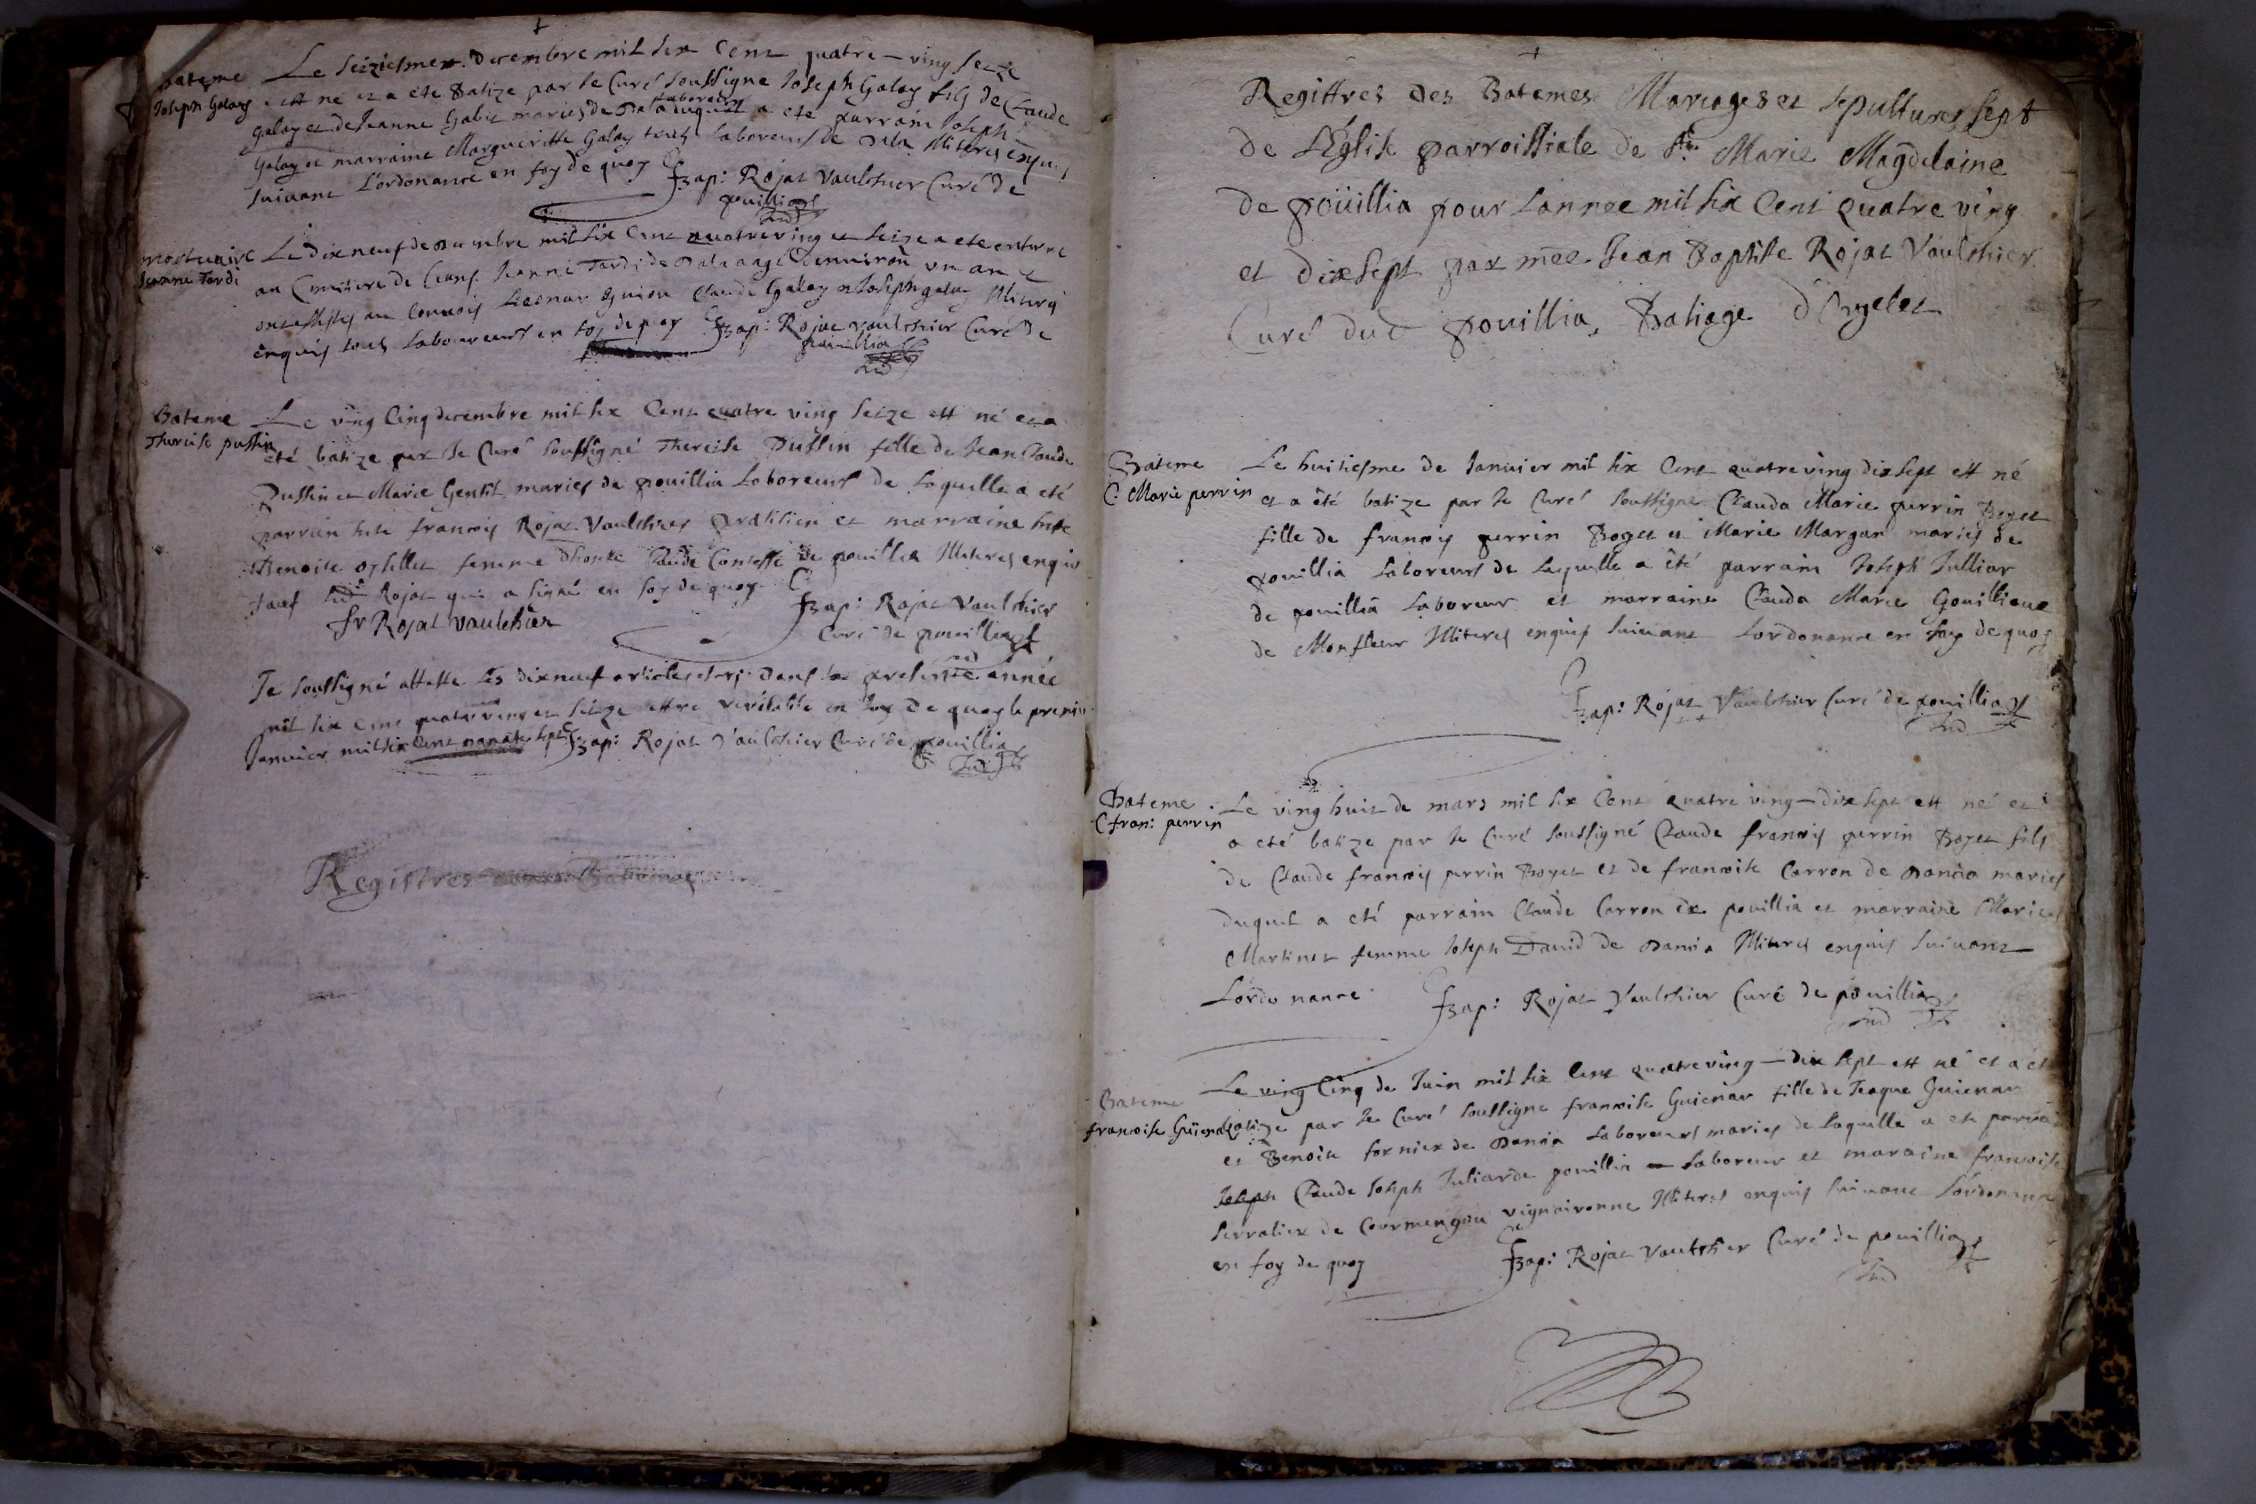 Bateme
Joseph Galay
Le seiziesme Decembre mil six Cent quatre-ving seize
est né et a ete Batize par le Curé soussigne Joseph Galay fils de Claude
laboreurs
galay et de Jeanne Gabit mariés de Dala duquel a ete parrain Joseph
Galay et marraine Margueritte Galay tous laboreurs de Dala Illiteres enquis
suivant L'ordonance en foy de quoy JBap: Rojat Vaulchier Curé de
pouillia
mortuaire
Jeanne Tardi
Le dix neuf decembre mil six Cent quatre ving et seize a ete enterre
au Cimitiere de Ceans Jeanne Tardi de Dala aagé denviron un an et
ont assistes au Convois Leonar guion Claude Galay et Joseph galay Illiteres
enquis tous laboureurs en foy de quoy JBap: Rojat Vaulchier Curé de
pouillia
Bateme
Therese pussin
Le ving Cinq decembre mil six Cent quatre ving seize est né et a
eté batize par le Curé soussigné Therese Pussin fille de Jean Claude
Pussin et Marie Gentit mariés de pouillia Laboreurs de Laquelle a eté
parrein francois Rojat Vaulchier praticien et marraine
Benoite femme Claude Contesse de pouillia Illiteres enquis
sauf Rojat qui a signé en foy de quoy
JBap: Rojat Vaulchier
fr Rojat vaulchier
Curé de pouillia
Je soussigné atteste Les dixneuf articles dans presente année
mil six Cent quatre ving et seize estre veritable en foy De quoy le premier
Janvier mil six Cent nonante sept JBap: Rojat Vaulchier Curé de pouillia
Registres
Registres des Batemes Mariages et sepultures sept
de L'Eglise parroissiale de Ste Marie Magdelaine
de pouillia pour Lannee mil six Cent quatre ving
et dix sept par mee Jean Baptiste Rojat Vaulchier
Curé dud pouillia, Baliage d'Orgelet
Bateme
C. Marie perrin
Le huitiesme de Janvier mil six Cent quatre ving dix sept est né
et a êté batize par le Curé soussigne Clauda Marie perrin Boyet
fille de francois perrin Boyet et Marie Margan mariés de
pouillia Laboreurs de Laquelle a êté parrain Joseph Julliar
de pouillia Laboreur et marraine Clauda Marie
de Monfleur Illiteres enquis suivant Lordonance en foy de quoy
JBap: Rojat Vaulchier Curé de pouillia
Bateme
C fran: perrin
Le ving huit de mars mil six Cent quatre ving-dix sept est né et
a eté batize par le Curé soussigné Claude francois perrin Boyet fils
de Claude francois perrin Boyet et de francoise Carron de Dancia mariés
duquel a eté parrain Claude Carron de pouillia et marraine
Martinet femme Joseph David de Dancia Illiteres enquis suivant
Lordonance JBap: Rojat Vaulchier Curé de pouillia
Bateme
francoise Guienar
Le ving Cinq de Juin mil six Cent quatre ving-dix sept est né et a eté
batize par le Curé soussigne francoise Guienar fille de Jeaque Guienar
et Benoite fornier de Dancia Laboreurs mariés de Laquelle a ete parrain
Joseph Claude Joseph Juliar de pouillia Laboreur et maraine francoise
de Cormengou vigneronne Illiteres enquis suivant Lordonance
en foy de quoy JBap: Rojat Vaulchier Curé de pouillia